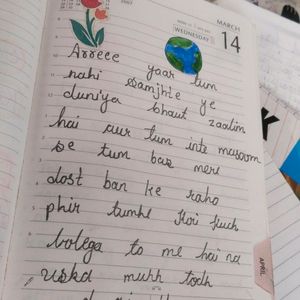 2007
MARCH
WEDNESDAY
14
Arreee yaar tum
nahi samjhte ye
duniya bhaut zaalim
hai aur tum inte masoom
se tum bas mere
dost ban ke raho
phir tumhe koi kuch
bolega to me hai na
uska muhh todh
APRIL